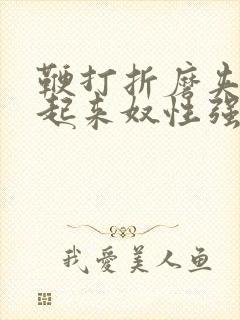 鞭打折磨夹
起来奴性强
我爱美人鱼